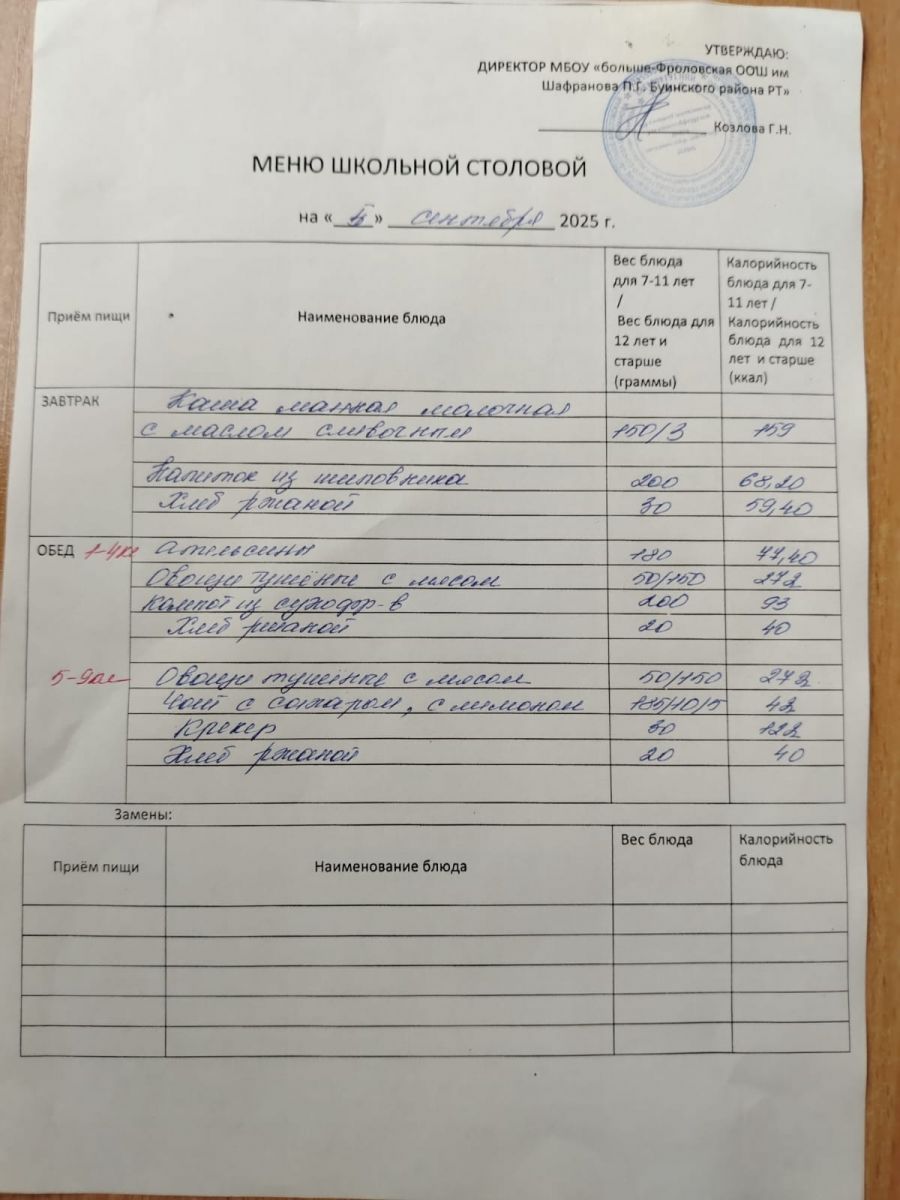 УТВЕРЖДАЮ:
ДИРЕКТОР МБОУ «больше-Фроловская ООШ им
Шафранова П.Г. Буинского района РТ»
Козлова Г.Н.
МЕНЮ ШКОЛЬНОЙ СТОЛОВОЙ
на « 5 » сентября 2025 г.
Приём пищи Наименование блюда Вес блюда для 7-11 лет / Вес блюда для 12 лет и старше (граммы) Калорийность блюда для 7-11 лет / Калорийность блюда для 12 лет и старше (ккал)
ЗАВТРАК Каша манная молочная
с маслом сливочным 150/3 159
Напиток из шиповника 200 68,20
Хлеб ржаной 30 59,40
ОБЕД 1-4кл Апельсины 180 77,40
Овощи тушёные с мясом 50/150 272
Компот из сухофр-в 200 93
Хлеб ржаной 20 40
5-9кл Овощи тушёные с мясом 50/150 272
Чай с сахаром, с лимоном 185/10/5 42
Крекер 30 122
Хлеб ржаной 20 40
Замены:
Приём пищи Наименование блюда Вес блюда Калорийность блюда